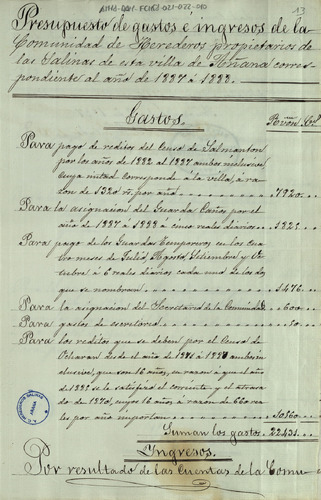 ATHA-DAH-FCIM-021-022-010
13
Presupuesto de gastos é ingresos de la
Comunidad de Herederos propietarios de
las Salinas de esta villa de Añana corres-
pondiente al año de 1887 á 1888.
Gastos.
Rvon. Cs.
Para pago de reditos del Censo de Salmanton
por los años de 1882 al 1887 ambos inclusives
cuya mitad corresponde á la villa, á ra-
zon de 1320 rs. por año
7920
Para la asignacion del Guarda Caños por el
año de 1887 á 1888 á cinco reales diarios
1825
Para pago de los Guardas temporeros en los cua-
tro meses de Julio Agosto Setiembre y Oc-
tubre á 6 reales diarios cada uno de los dos
que se nombran
1476
Para la asignacion del Secretario de la Comunidad
600
Para gastos de escritorio
50
Para los reditos que se deben por el Censo de
Ocharan desde el año de 1871 á 1887 ambos in-
clusives, que son 16 años, en razon á que el año
de 1882 se le satisfizo el corriente y el atrasa-
do de 1870, cuyos 16 años á razon de 660 rea-
les por año importan
10560
Suman los gastos
22431
Ingresos.
Por resultado de las Cuentas de la Comu-